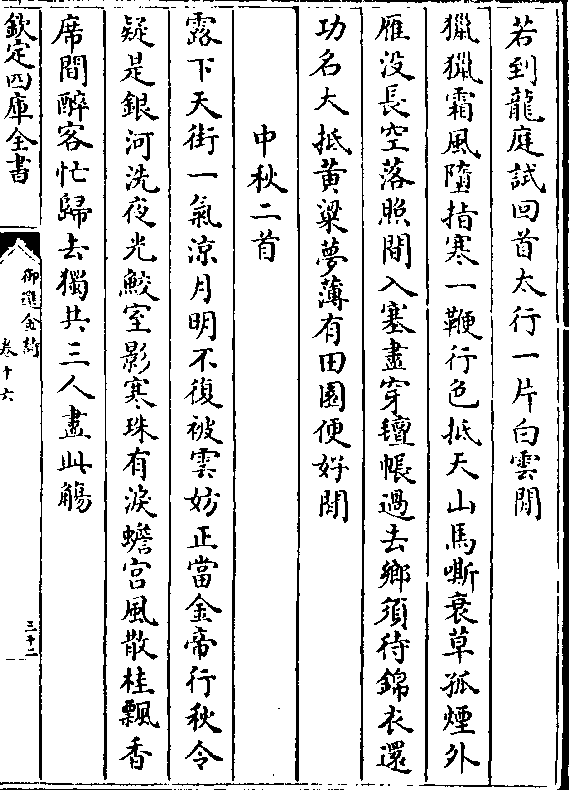 若到龍庭試回首太行一片白雲間
獵獵霜風墮指寒一鞭行色抵天山馬嘶衰草孤煙外
雁没長空落照間入塞盡穿氊帳過去鄉須待錦衣還
功名大抵黄粱夢薄有田園便好閒
中秋二首
露下天街一氣涼月明不復被雲妨正當金帝行秋令
疑是銀河洗夜光鮫室影寒珠有淚蟾宮風散桂飄香
席間醉客忙歸去獨共三人盡此觴
欽定四庫全書
御選金詩
卷十六
三十二